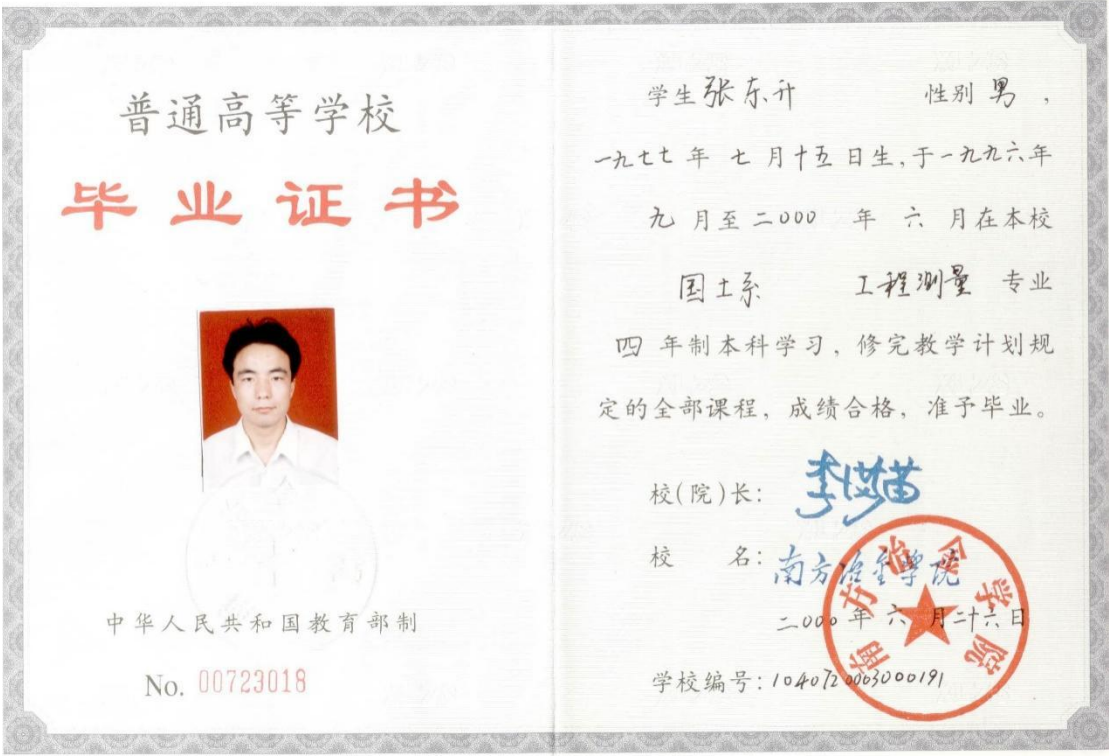 普通高等学校
毕业证书
中华人民共和国教育部制
No. 00723018
学生 张东升 性别 男 ，
一九七七 年 七 月 十五 日生，于 一九九六 年
九 月至 二000 年 六 月在本校
国土系 工程测量 专业
四 年制本科学习，修完教学计划规
定的全部课程，成绩合格，准予毕业。
校(院)长：
校 名：南方冶金学院
二000 年 六 月 二十六 日
学校编号：1040720003000191
南方冶金学院